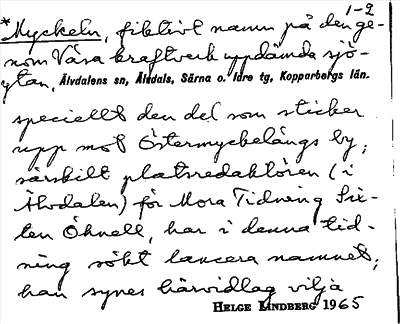 1-2
*Myckeln, fiktivt namn på den ge-
nom Våra kraftverk uppdämda sjö-
ytan, Älvdalens sn, Älvdals, Särna o. Idre tg, Kopparbergs län.
speciellt den del som sticker
upp mot Östermyckelängs by;
särskilt platsredaktören (i
Älvdalen) för Mora Tidning Six-
ten Öhnell, har i denna tid-
ning sökt lancera namnet;
han synes härvidlag vilja
HELGE LINDBERG 1965